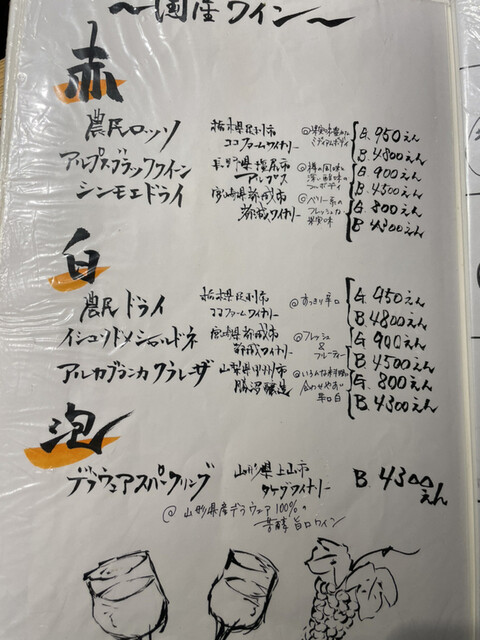 ～国産ワイン～
赤
農民ロッソ 栃木県足利市 ココファームワイナリー @果実味豊かな ミディアムボディ G. 950えん B. 4800えん
アルプスブラッククイーン 長野県塩尻市 アルプス @樽の風味と 深い酸味の フルボディ G 900えん B. 4500えん
シンモエドライ 宮崎県都城市 都城ワイナリー @ベリー系の フレッシュな 果実味 G 800えん B 4300えん
白
農民ドライ 栃木県足利市 ココファームワイナリー @すっきり辛口 G. 950えん B. 4800えん
シャルドネ 宮崎県都城市 都城ワイナリー @フレッシュ & フルーティー G 900えん B. 4500えん
アルカブランカ クラレーザ 山梨県甲州市 勝沼醸造 @いろんな料理に 合わせやすい 辛口白 G. 800えん B. 4300えん
泡
デラウェアスパークリング 山形県上山市 タケダワイナリー B 43△△えん
@山形県産デラウェア100%の
芳醇旨口ワイン